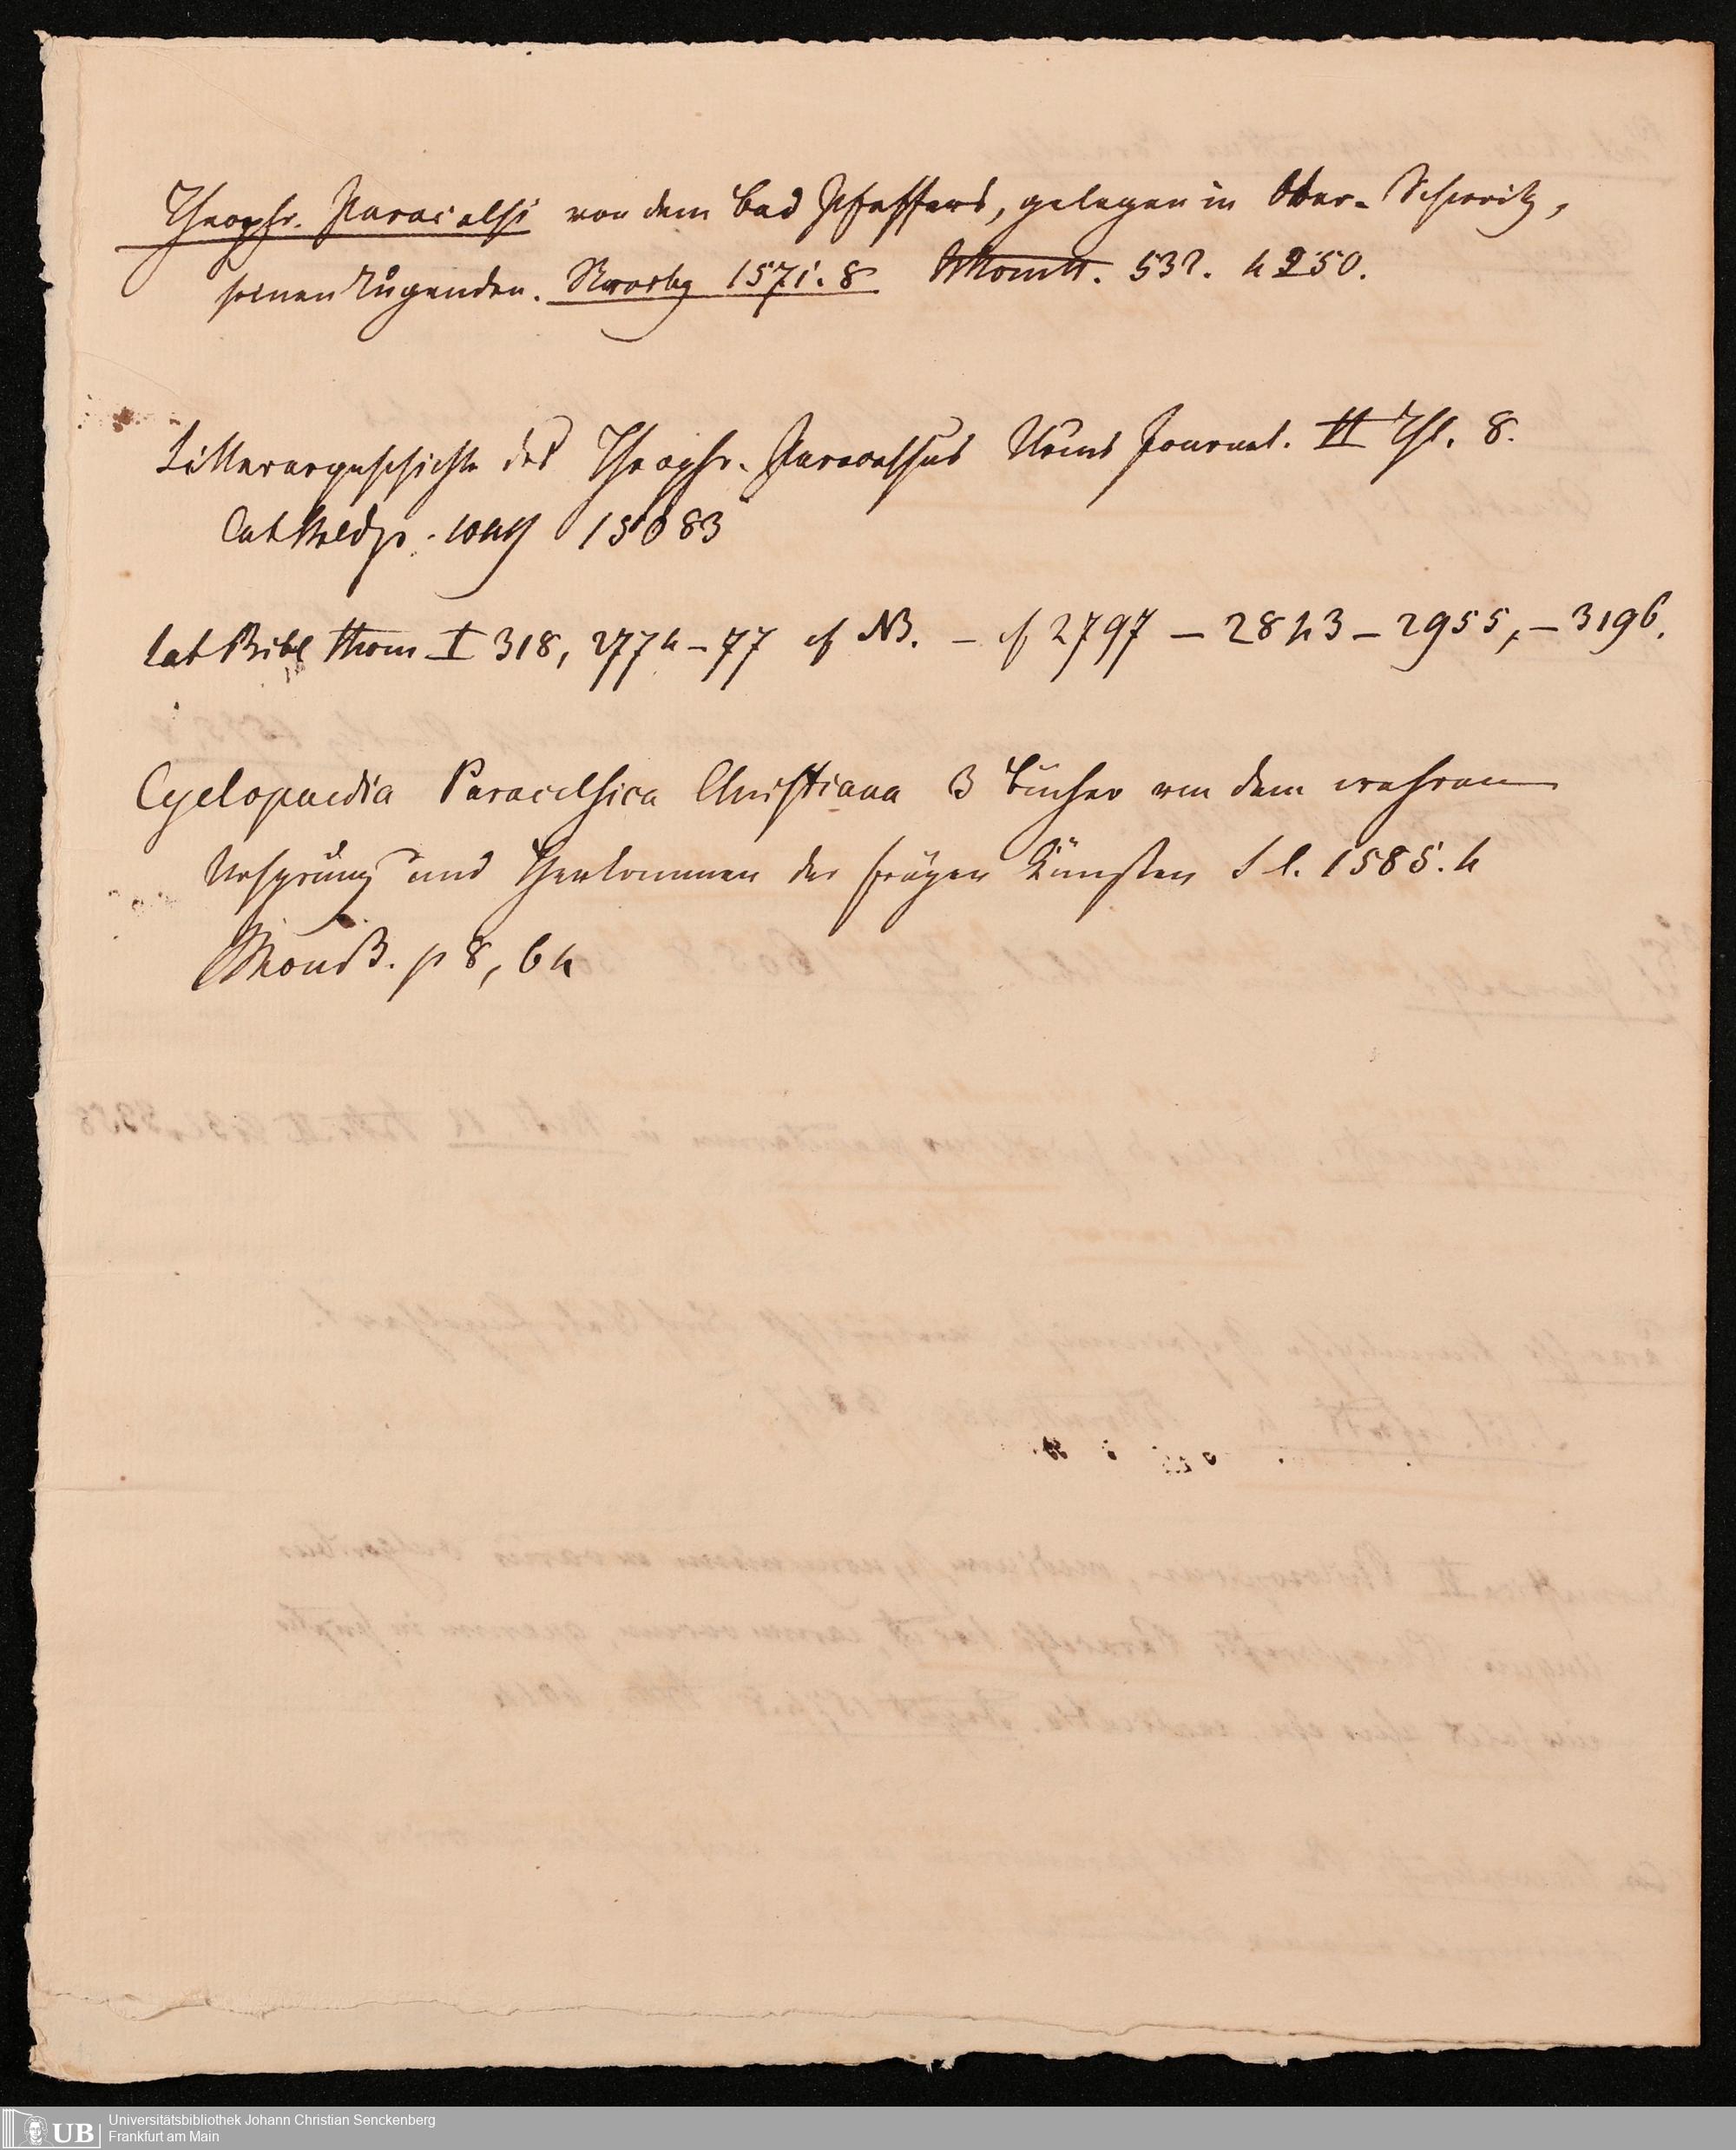 Theophr. Paracelsi von dem Bad Pfeffers, gelegen in Ober-Schweitz,
seinen Tugenden. Strasbg 1571. 8 532. 4250.
Litterargeschichte des Theophr. Paracelsus Journal. II Thl. 8.
Cat 15083
Cat Bibl Thom I 318, 2774-77 cf NB. - cf 2797 - 2843 - 2955, - 3196.
Cyclopaedia Paracelsica Christiana 3 Bücher von dem wahren
Ursprung und Herkommen der freyen Künsten S l. 1585. 4
p 8, 64
Universitätsbibliothek Johann Christian Senckenberg
Frankfurt am Main
UB